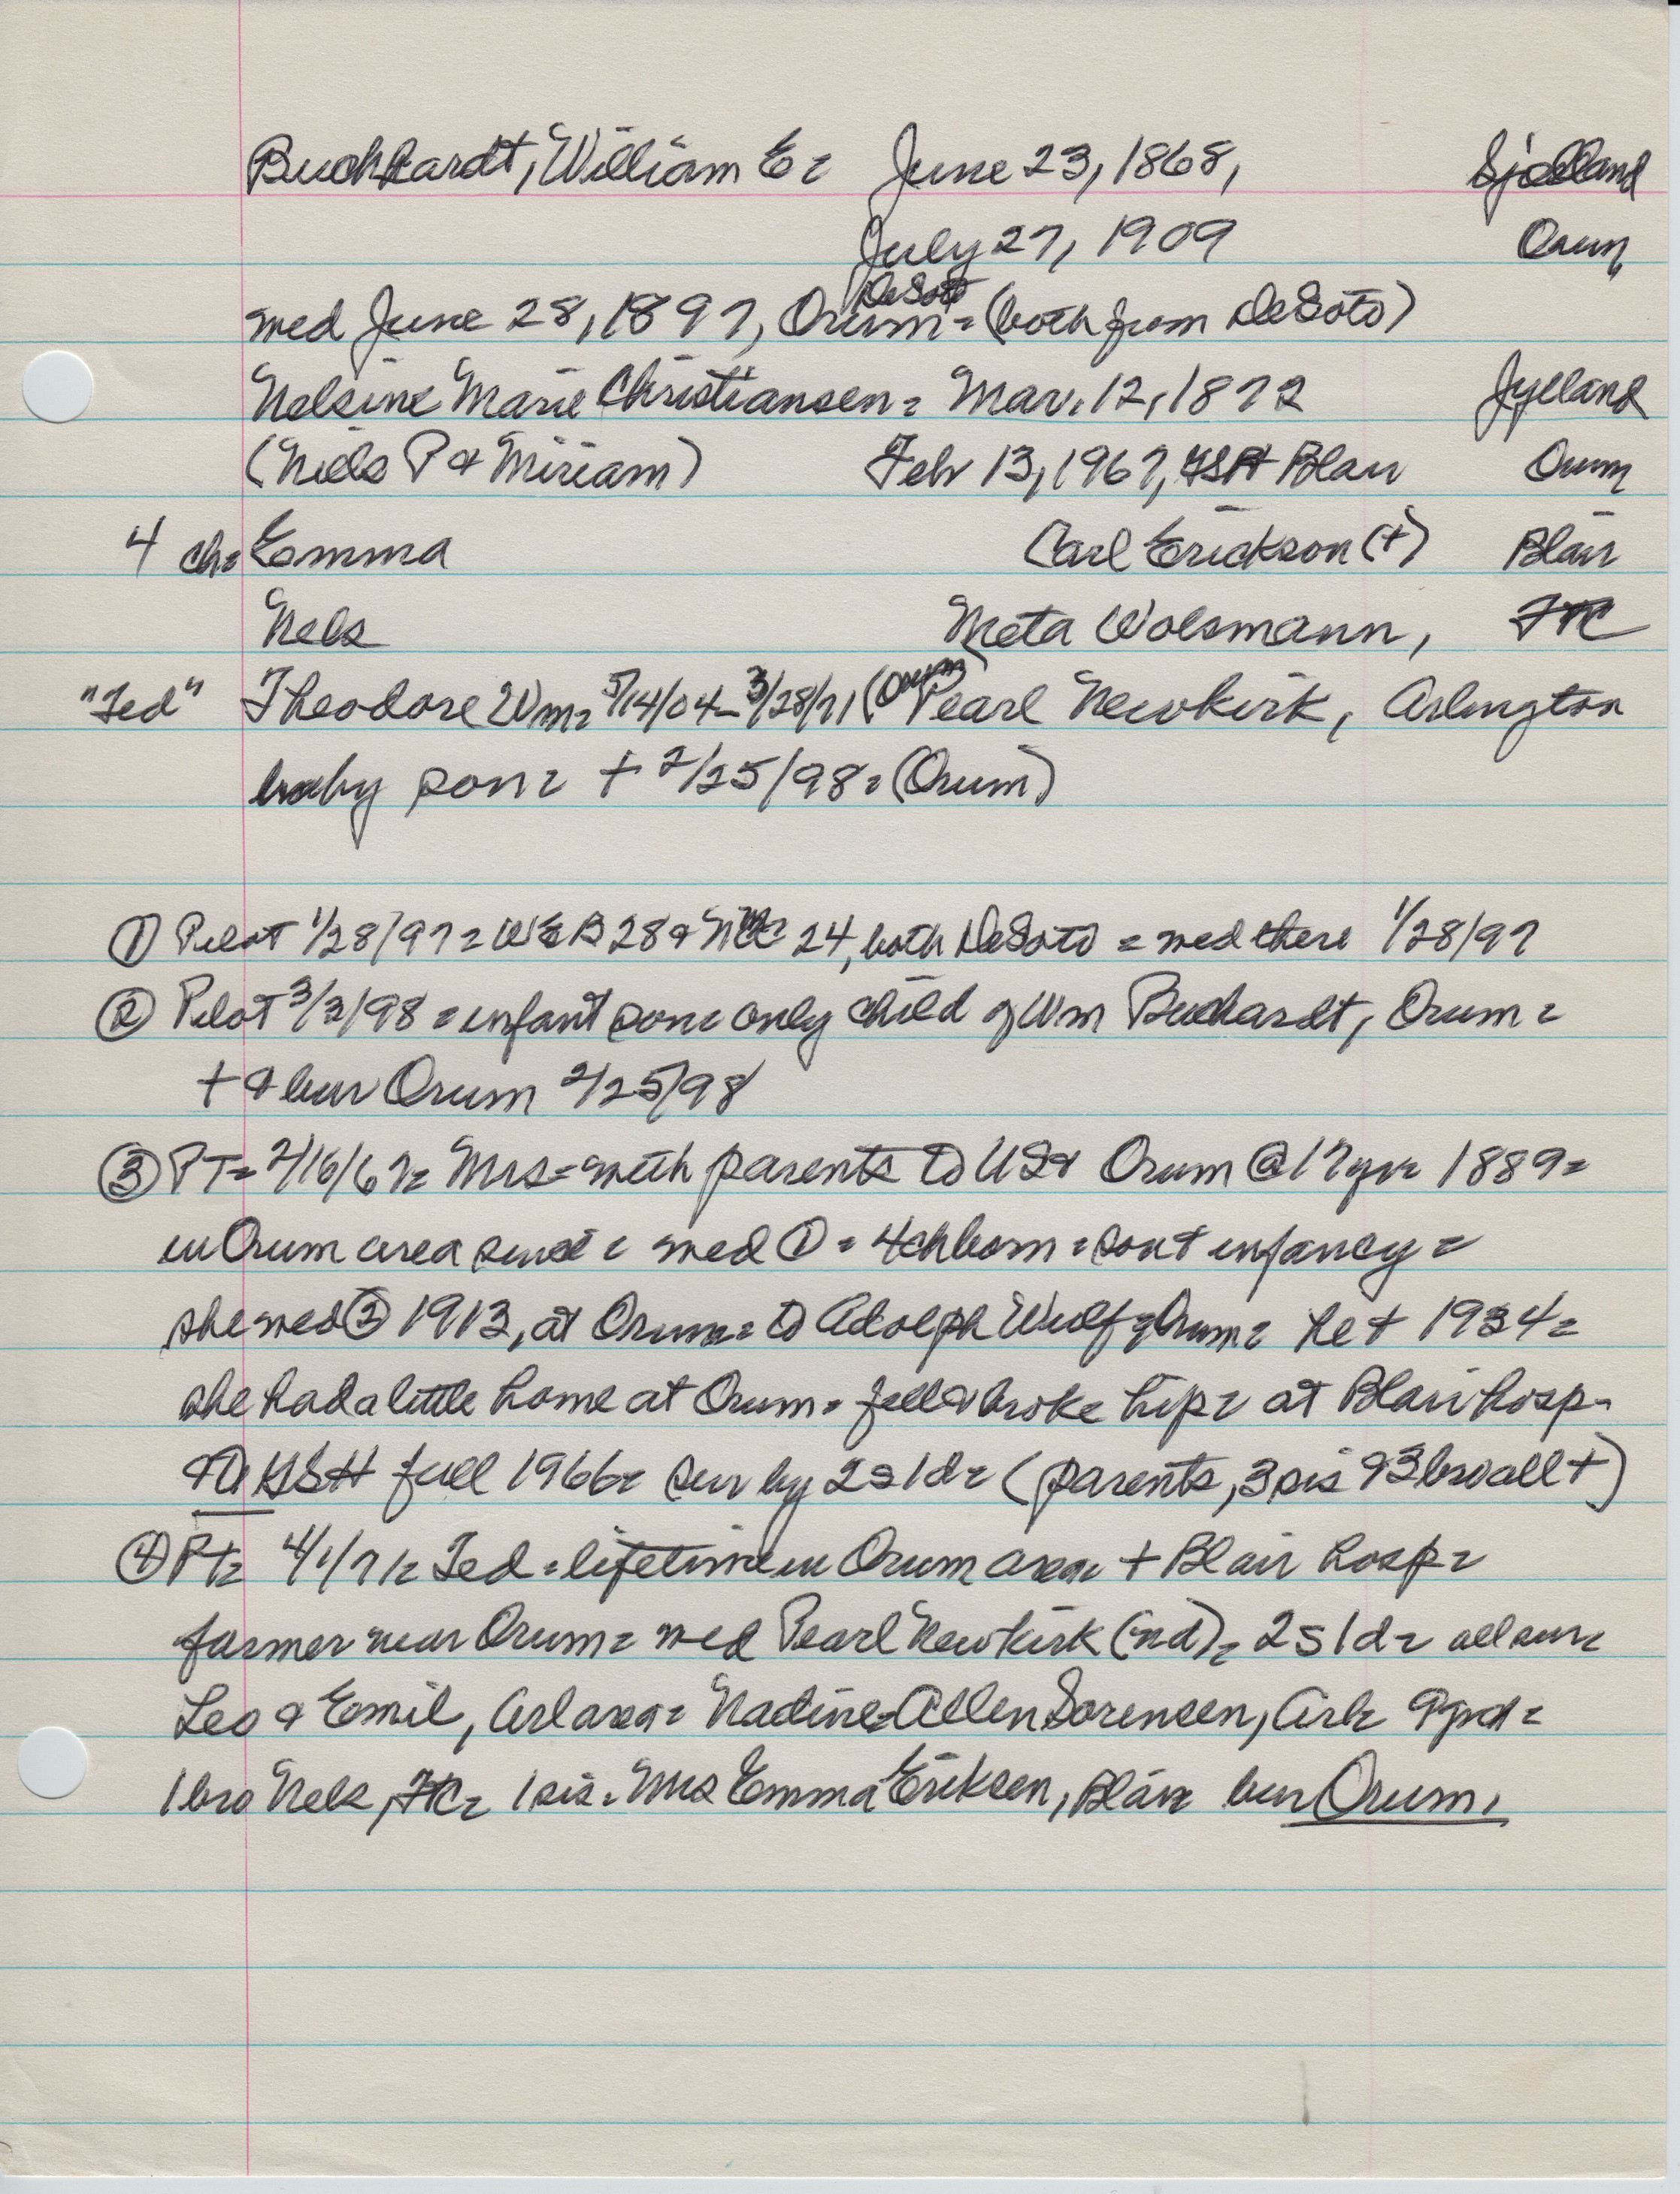 Buchhardt, William E = June 23, 1868, Sjælland
July 27, 1909 Orum
DeSoto
med June 28, 1897, Orum = (both from DeSoto)
Nelsine Marie Christiansen = Mar. 12, 1872 Jylland
(Niels P & Miriam) Feb 13, 1967, GSH Blair Orum
4 ch = Emma Carl Erickson (+) Blair
Nels Meta Wolsmann, FtC
"Ted" Theodore Wm = 5/14/04 - 3/28/71 (Orum) Pearl Newkirk, Arlington
baby son = + 2/25/98 = (Orum)
① Pilot 1/28/97 = WEB 28 & 24, both DeSoto = med there 1/28/97
② Pilot 3/3/98 = infant son = only child of Wm Buchardt, Orum =
+ & bur Orum 2/25/98
③ PT = 2/16/67 = Mrs = with parents to US & Orum @ 17 yr = 1889 =
in Orum area since = med ① = 4 ch born = son + infancy =
she med ② 1913, at Orum = to Adolph Wulf of Orum = he + 1934 =
she had a little home at Orum = fell & broke hip = at Blair hosp -
& to GSH fall 1966 = sur by 2s 1d = (parents, 3 sis & 3 bro all +)
④ Pt = 4/1/71 = Ted = lifetime in Orum area = + Blair hosp =
farmer near Orum = med Pearl Newkirk (nd) = 2s 1d = all sur =
Leo & Emil, Arl area = Nadine = Allen Sorensen, Arl = 9 grd =
1 bro Nels, FtC = 1 sis = Mrs Emma Eriksen, Blair bur Orum.